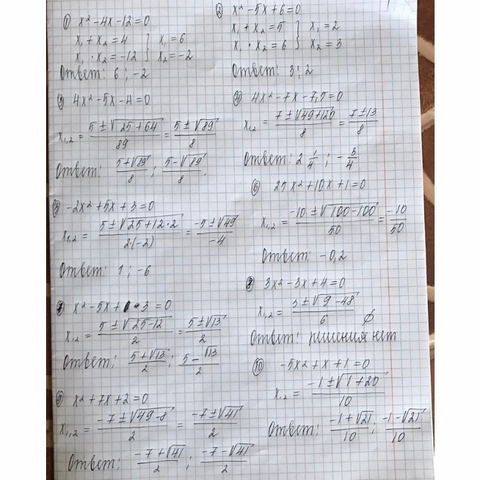 ① x² - 4x - 12 = 0
x₁ + x₂ = 4 } x₁ = 6
x₁ · x₂ = -12 } x₂ = -2
Ответ: 6 ; -2
② x² - 5x + 6 = 0
x₁ + x₂ = 5 } x₁ = 2
x₁ · x₂ = 6 } x₂ = 3
Ответ: 3 ; 2
③ 4x² - 5x - 4 = 0
x₁,₂ = (5 ± √(25 + 64))/89 = (5 ± √89)/8
Ответ: (5 + √89)/8 ; (5 - √89)/8 .
④ 4x² - 7x - 7,5 = 0
x₁,₂ = (7 ± √(49 + 120))/8 = (7 ± 13)/8
Ответ: 2 1/4 ; - 3/4
⑤ -2x² + 5x + 3 = 0
x₁,₂ = (5 ± √(25 + 12 · 2))/(2·(-2)) = (-5 ± √49)/-4
Ответ: 1 ; -6
⑥ 25x² + 10x + 1 = 0
x₁,₂ = (-10 ± √(100 - 100))/50 = -10/50
Ответ: -0,2
x² - 5x + 3 = 0
x₁,₂ = (5 ± √(25 - 12))/2 = (5 ± √13)/2
Ответ: (5 + √13)/2 ; (5 - √13)/2
3x² - 3x + 4 = 0
x₁,₂ = (3 ± √(9 - 48))/6 ∅
Ответ: решения нет
⑨ x² + 7x + 2 = 0
x₁,₂ = (-7 ± √(49 - 8))/2 = (-7 ± √41)/2
Ответ: (-7 + √41)/2 ; (-7 - √41)/2
⑩ -5x² + x + 1 = 0
x₁,₂ = (-1 ± √(1 + 20))/10
Ответ: (-1 + √21)/10 ; (-1 - √21)/10